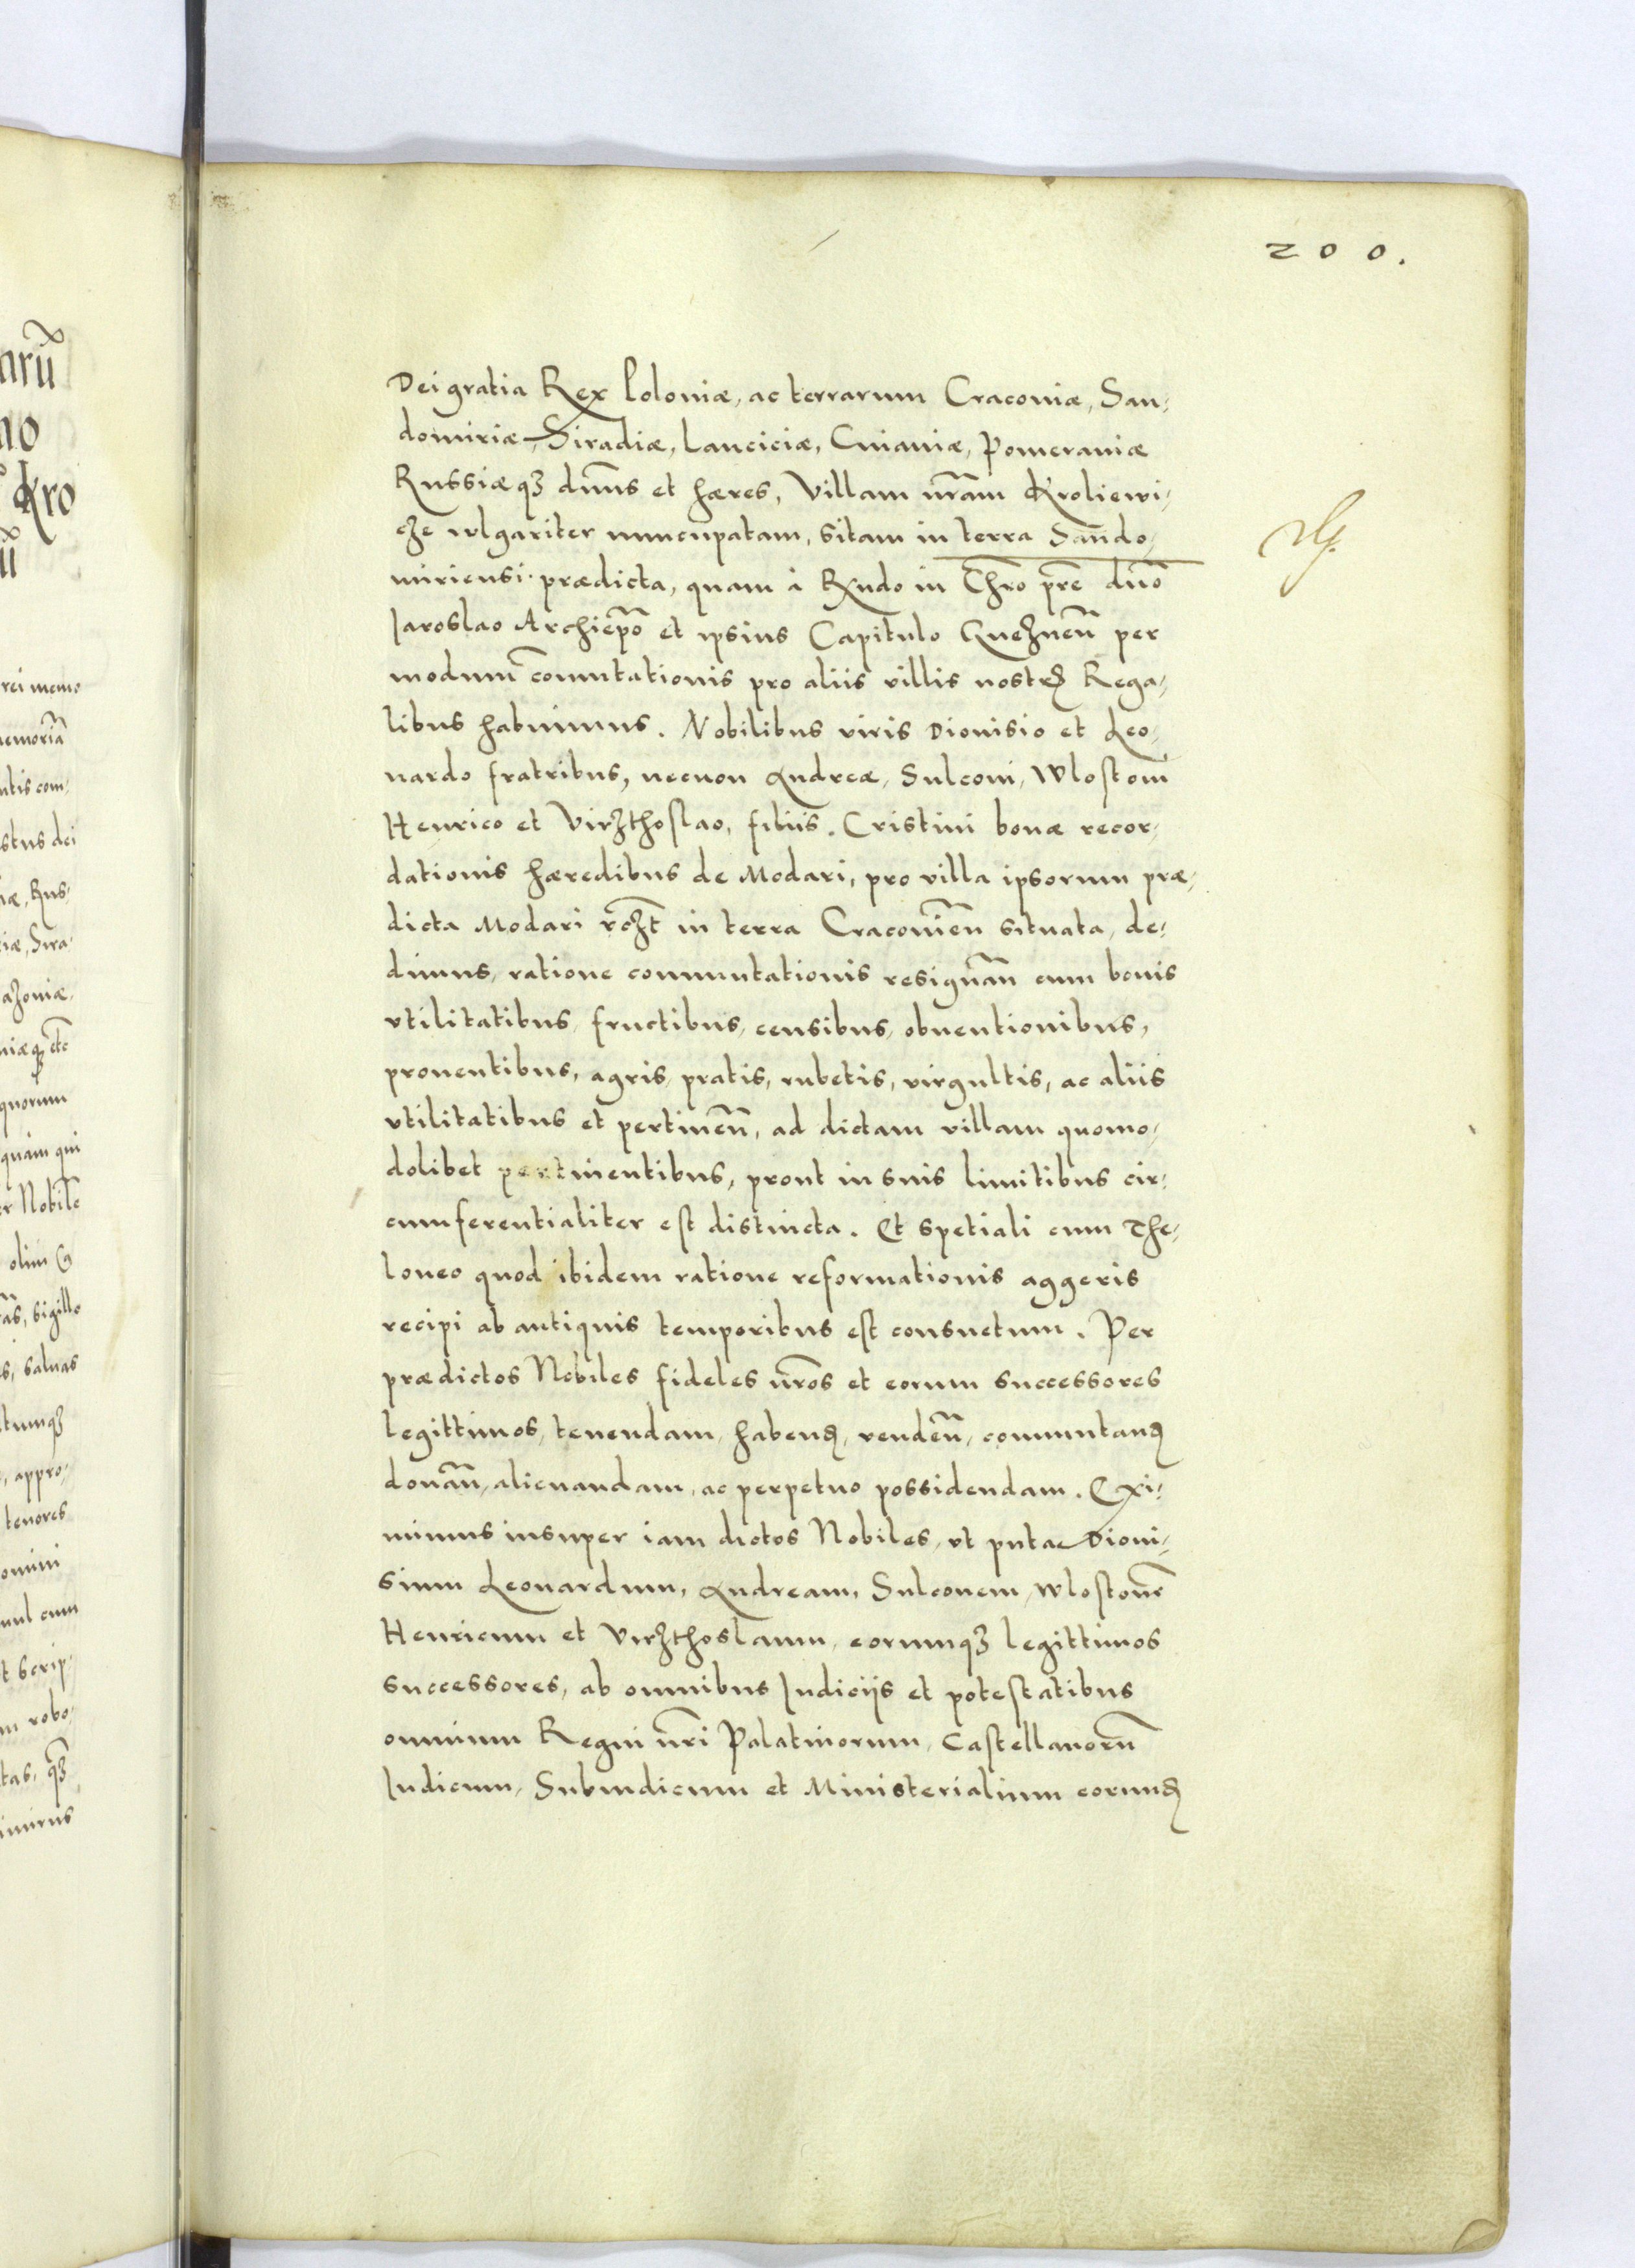 200.
Dei gratia Rex Poloniæ, ac terrarum Cracoviæ, San-
domiriæ, Siradiæ, Lanciciæ, Cuiaviæ, Pomeraniæ
Russiæqꝫ dn̄ns et hæres, Villam nr̄am Kroliewi-
cze vlgariter nuncupatam, sitam in terra Sando-
miriensi prædicta, quam à Rx̄ndo in Chr̄o pr̄e dn̄o
Jaroslao Archiep̄o et ipsius Capitulo Gneznen̄ per
modum com̄utationis pro aliis villis nostrꝭ Rega-
libus habuimus. Nobilibus viris Dionisio et Leo-
nardo fratribus, necnon Andreæ, Sulconi, Wlostoni
Henrico et Virzthoslao, filiis. Cristini bonæ recor-
dationis hæredibus de Modari, pro villa ipsorum præ-
dicta Modari in terra Cracovien̄ situata, de-
dimus, ratione commutationis resignan̄ cum bonis
vtilitatibus, fructibus, censibus, obuentionibus,
prouentibus, agris, pratis, rubetis, virgultis, ac aliis
vtilitatibus et pertinen̄, ad dictam villam quomo-
dolibet pertinentibus, prout in suis limitibus cir-
cumferentialiter est distincta. Et spetiali cum The-
loneo quod ibidem ratione reformationis aggeris
recipi ab antiquis temporibus est consuetum. Per
prædictos Nobiles fideles nr̄os et eorum successores
legittimos, tenendam, habenꝭ, venden̄, commutanꝭ
donan̄, alienandam, ac perpetuo possidendam. Exi-
mimus insuper iam dictos Nobiles, vt puta Dioni-
sium Leonardum, Andream, Sulconem, Wlostonē
Henricum et Virzthoslaum, eorumqꝫ legittimos
successores, ab omnibus Iudiciis et potestatibus
omnium Regni nr̄i Palatinorum, Castellanorū
Iudicum, Subiudicum et Ministerialium eorumꝭ